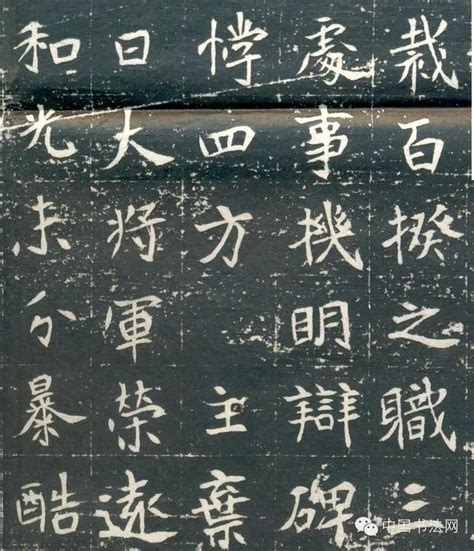 裁百揆之職
處事機明辯碑
四方 主棄
日大将軍榮遠
和光未分暴酷
中国书法网